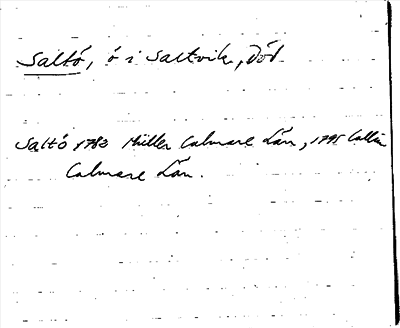 Saltö, ö i Saltvik, Död.
Saltö 1783 Müller Calmare Län, 1795 Collin
Calmare Län.